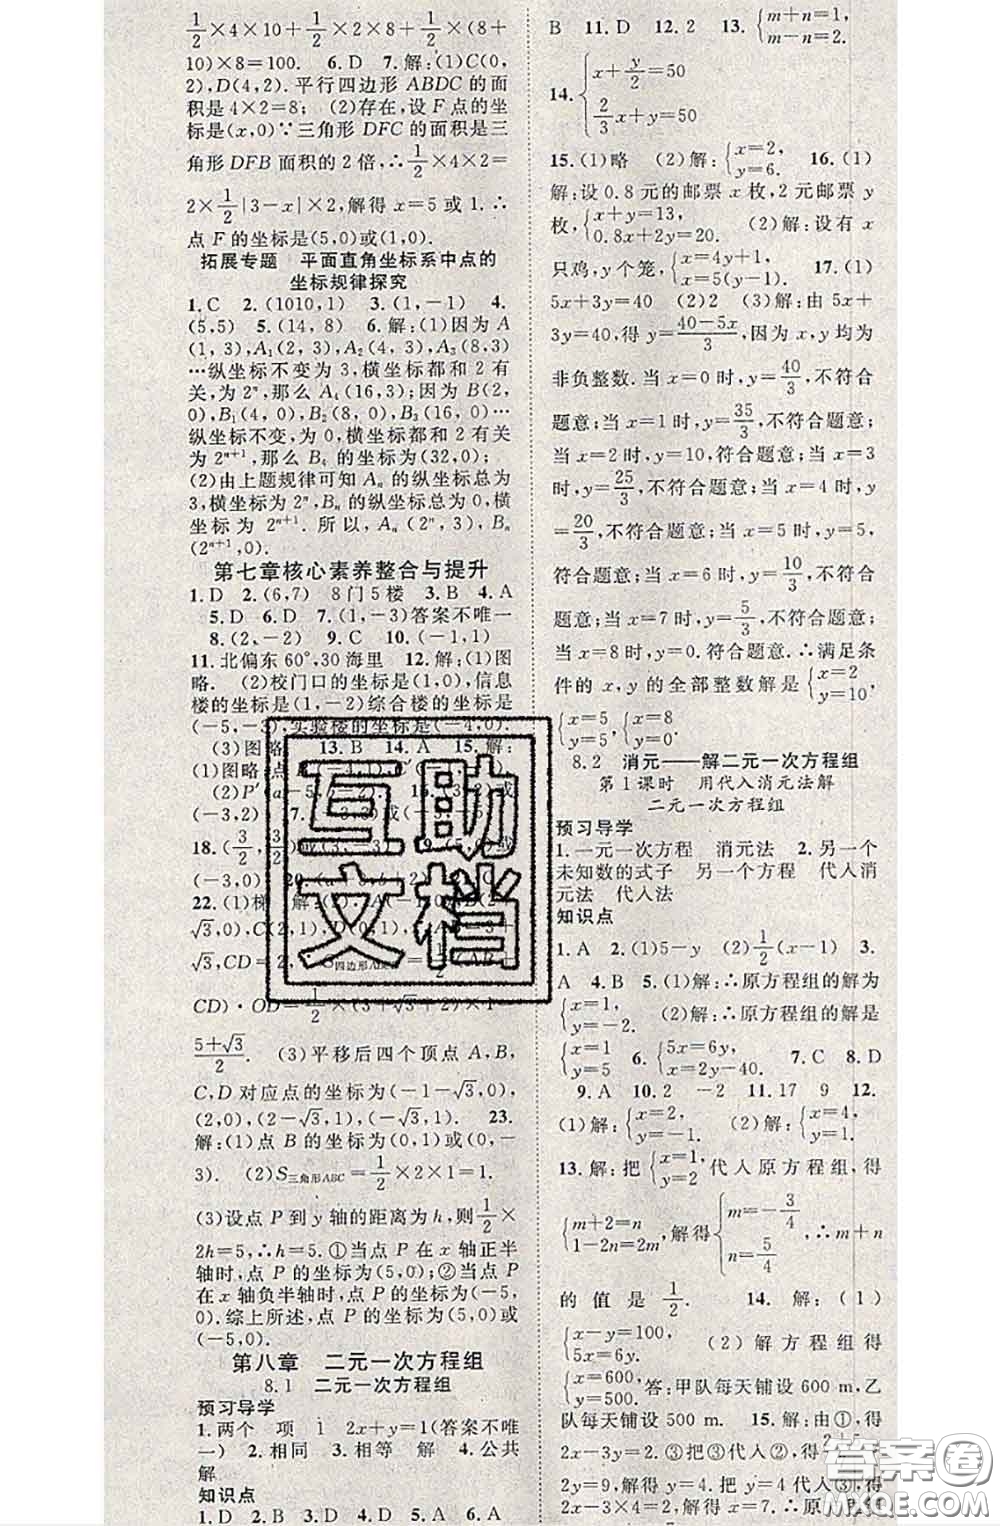 1/2×4×10+1/2×2×8+1/2×(8+
10)×8=100. 6.D 7.解:(1)C(0,
2),D(4,2).平行四边形 ABDC 的面
积是 4×2=8; (2)存在,设 F 点的坐
标是(x,0)∵三角形 DFC 的面积是三
角形 DFB 面积的 2 倍,∴1/2×4×2=
2×1/2|3-x|×2,解得 x=5 或 1.∴
点 F 的坐标是(5,0)或(1,0).
拓展专题 平面直角坐标系中点的
坐标规律探究
1.C 2.(1010,1) 3.(1,-1) 4.
(5,5) 5.(14,8) 6.解:(1)因为 A
(1,3),A₁(2,3),A₂(4,3),A₃(8,3)
…纵坐标不变为 3,横坐标都和 2 有
关,为 2ⁿ,那么 A₄(16,3);因为 B(2,
0),B₁(4,0),B₂(8,0),B₃(16,0)…
纵坐标不变,为 0,横坐标都和 2 有关
为 2ⁿ⁺¹,那么 B₄ 的坐标为(32,0);
(2)由上题规律可知 Aₙ 的纵坐标总为
3,横坐标为 2ⁿ,Bₙ 的纵坐标总为 0,横
坐标为 2ⁿ⁺¹.所以,Aₙ(2ⁿ,3),Bₙ
(2ⁿ⁺¹,0).
第七章核心素养整合与提升
1.D 2.(6,7) 8门5楼 3.B 4.A
5.D 6.D 7.(1,-3)答案不唯一
8.(2,-2) 9.C 10.(-1,1)
11.北偏东 60°,30 海里 12.解:(1)图
略. (2)校门口的坐标是(1,0),信息
楼的坐标是(1,-2)综合楼的坐标是
(-5,-3),实验楼的坐标是(-4,0).
(3)图略 13.B 14.A 15.解:
(1)图略
(2)P′
(-3,2)
18.(3/2,3/2)
(-3,0)
22.(1)梯
√3,0),C(2
√3,CD=2
CD)·OD=1/2×(3+√3+2)×1=
(5+√3)/2. (3)平移后四个顶点 A,B,
C,D 对应点的坐标为(-1-√3,0),
(2,0),(2-√3,1),(-√3,1) 23.
解:(1)点 B 的坐标为(0,1)或(0,-
3). (2)S三角形ABC=1/2×2×1=1.
(3)设点 P 到 y 轴的距离为 h,则1/2×
2h=5,∴h=5.①当点 P 在 x 轴正半
轴时,点 P 的坐标为(5,0);②当点 P
在 x 轴负半轴时,点 P 的坐标为(-5,
0).综上所述,点 P 的坐标为(5,0)或
(-5,0).
第八章 二元一次方程组
8.1 二元一次方程组
预习导学
1.两个 项 1 2x+y=1(答案不唯
一) 2.相同 3.相等 解 4.公共
解
知识点
1.B 2.D 3.D 4.D 5.A 6.A
B 11.D 12.2 13.{m+n=1, m-n=2.
14.{x+y/2=50 2/3x+y=50
15.(1)略 (2)解:{x=2, y=6. 16.(1)
解:设 0.8 元的邮票 x 枚,2 元邮票 y
枚,{x+y=13, 0.8x+2y=20. (2)解:设有 x
只鸡,y 个笼,{x=4y+1, x=5(y-1). 17.(1)
5x+3y=40 (2)2 (3)解:由 5x+
3y=40,得 y=(40-5x)/3,因为 x,y 均为
非负整数.当 x=0 时,y=40/3,不符合
题意;当 x=1 时,y=35/3,不符合题意;当
x=2 时,y=10,符合题意;当 x=3
时,y=25/3,不符合题意;当 x=4 时,y
=20/3,不符合题意;当 x=5 时,y=5,
符合题意;当 x=6 时,y=10/3,不符合
题意;当 x=7 时,y=5/3,不符合题意;
当 x=8 时,y=0,符合题意.∴满足条
件的 x,y 的全部整数解是{x=2 y=10,
{x=5 y=5,{x=8 y=0.
8.2 消元——解二元一次方程组
第 1 课时 用代入消元法解
二元一次方程组
预习导学
1.一元一次方程 消元法 2.另一个
未知数的式子 另一个方程 代入消
元法 代入法
知识点
1.A 2.(1)5-y (2)1/2(x-1) 3.
A 4.B 5.(1)解:∴原方程组的解为
{x=1 y=-2. (2)解:∴原方程组的解是
{x=1 y=5 6.{5x=6y, x=2y-40. 7.C 8.D
9.A 10.2 -2 11.17 9 12.
(1)解:{x=2, y=-1. (2)解:{x=4, y=1.
13.解:把{x=1, y=2代入原方程组,得
{m+2=n 1-2n=2m,解得{m=-3/4 n=5/4,∴m+n
的值是1/2. 14.解:(1)
{x-y=100, 5x=6y. (2)解方程组得
{x=600, y=500.答:甲队每天铺设 600 m,乙
队每天铺设 500 m. 15.解:由①,得
2x-3y=2.③把③代入②,得
2y=9,解得 y=4.把 y=4 代入③,得
2x-3×4=2.解得 x=7.∴原方程组
互助
文档
答案圈
MXQE.COM